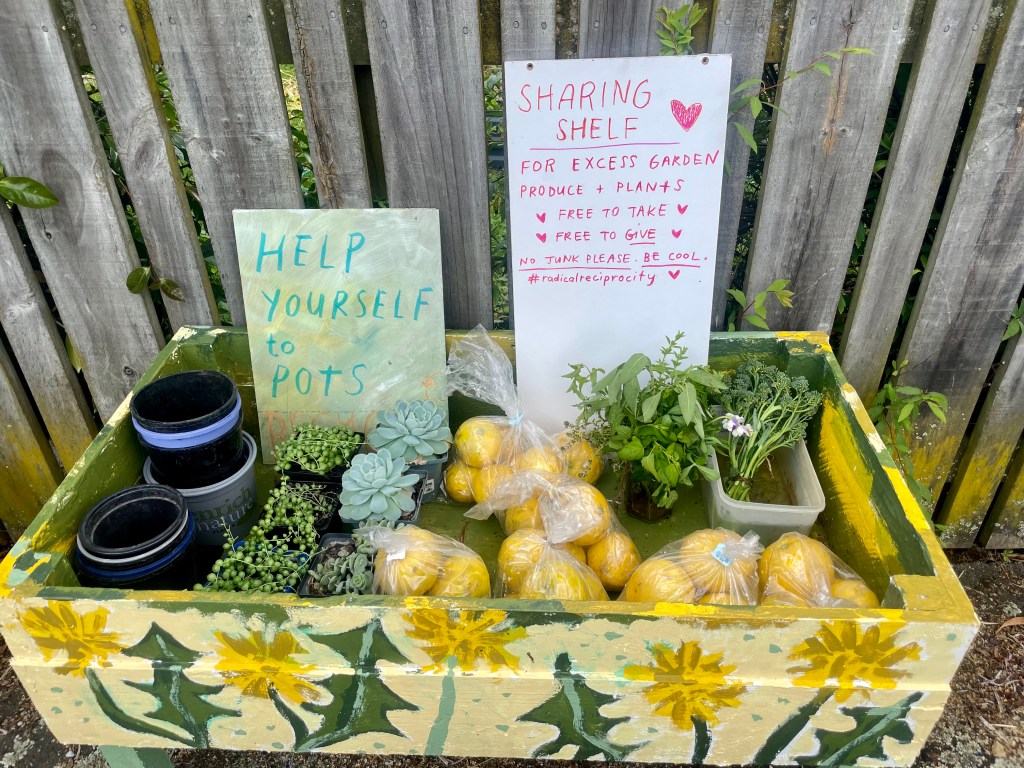 SHARING
SHELF
FOR EXCESS GARDEN
PRODUCE + PLANTS
FREE TO TAKE
FREE TO GIVE
NO JUNK PLEASE. BE COOL.
#radicalreciprocity
HELP
YOURSELF
to
POTS
nature